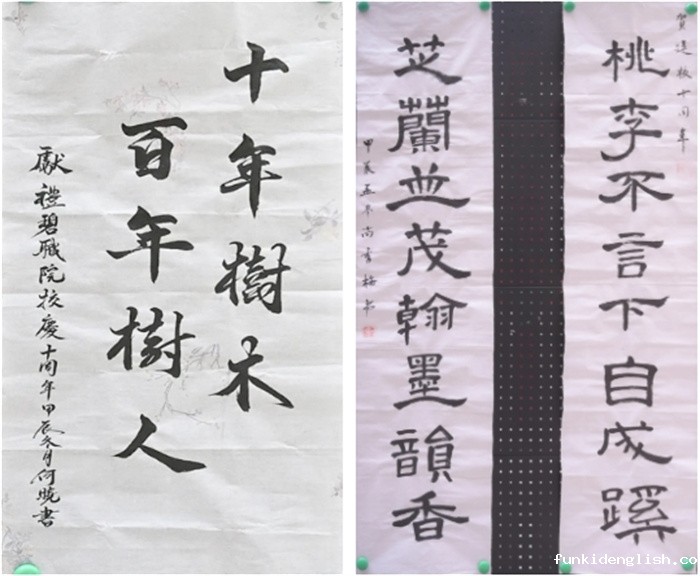 十年樹木
百年樹人
獻禮碧職院校慶十周年甲辰冬月何曉書
賀建校十周年
桃李不言下自成蹊
芝蘭並茂翰墨韻香
甲辰孟冬尚梅書
funkidenglish.co